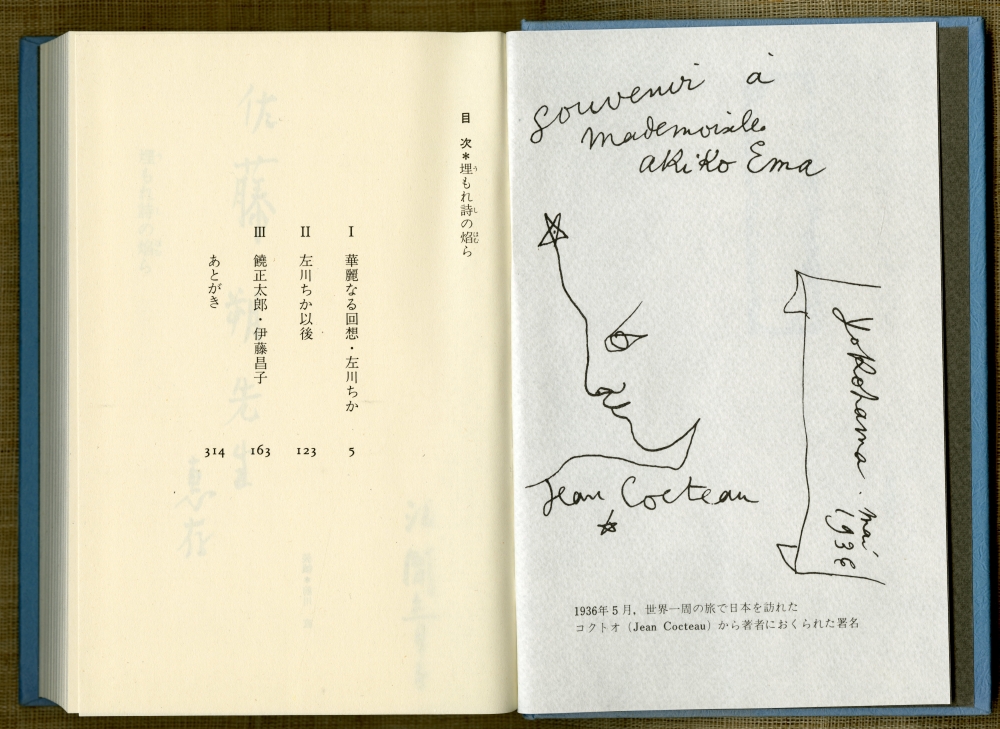 souvenir à
Mademoiselle
akiko Ema
Jean Cocteau
Yokohama. mai
1936
1936年5月，世界一周の旅で日本を訪れた
コクトオ（Jean Cocteau）から著者におくられた署名
目次＊埋もれ詩の焔ら
うもれしのほむら
Ⅰ 華麗なる回想・左川ちか 5
Ⅱ 左川ちか以後 123
Ⅲ 饒正太郎・伊藤昌子 163
あとがき 314
佐藤朔先生
恵存